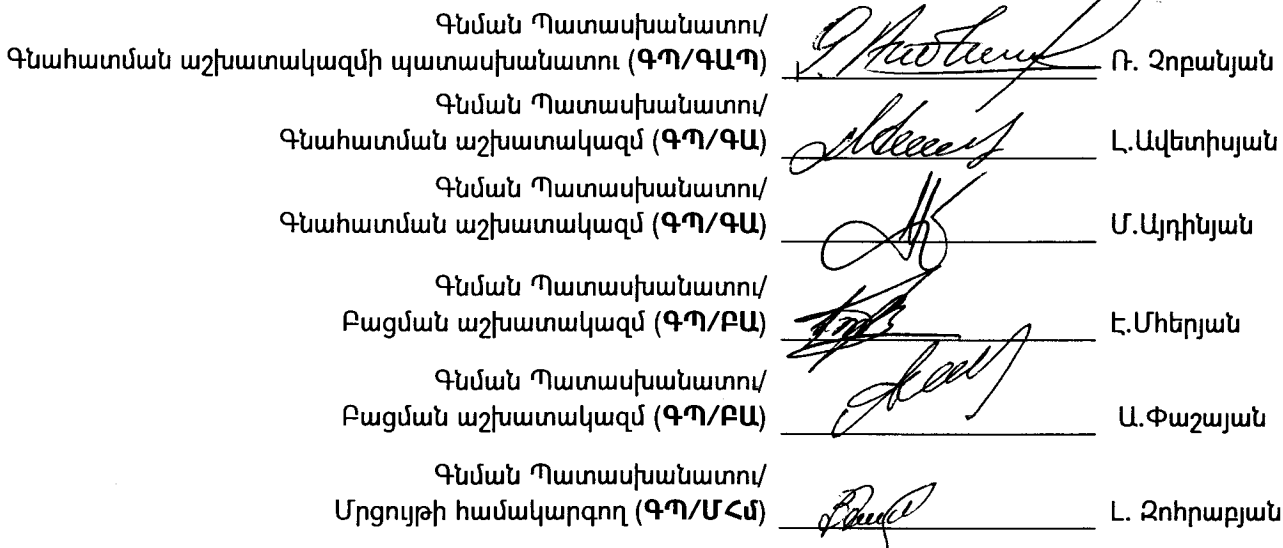 Գնման Պատասխանատու/
Գնահատման աշխատակազմի պատասխանատու (ԳՊ/ԳԱՊ) Ռ. Չոբանյան
Գնման Պատասխանատու/
Գնահատման աշխատակազմ (ԳՊ/ԳԱ) Լ.Ավետիսյան
Գնման Պատասխանատու/
Գնահատման աշխատակազմ (ԳՊ/ԳԱ) Մ.Այդինյան
Գնման Պատասխանատու/
Բացման աշխատակազմ (ԳՊ/ԲԱ) Է.Մհերյան
Գնման Պատասխանատու/
Բացման աշխատակազմ (ԳՊ/ԲԱ) Ա.Փաշայան
Գնման Պատասխանատու/
Մրցույթի համակարգող (ԳՊ/ՄՀմ) Լ. Զոհրաբյան